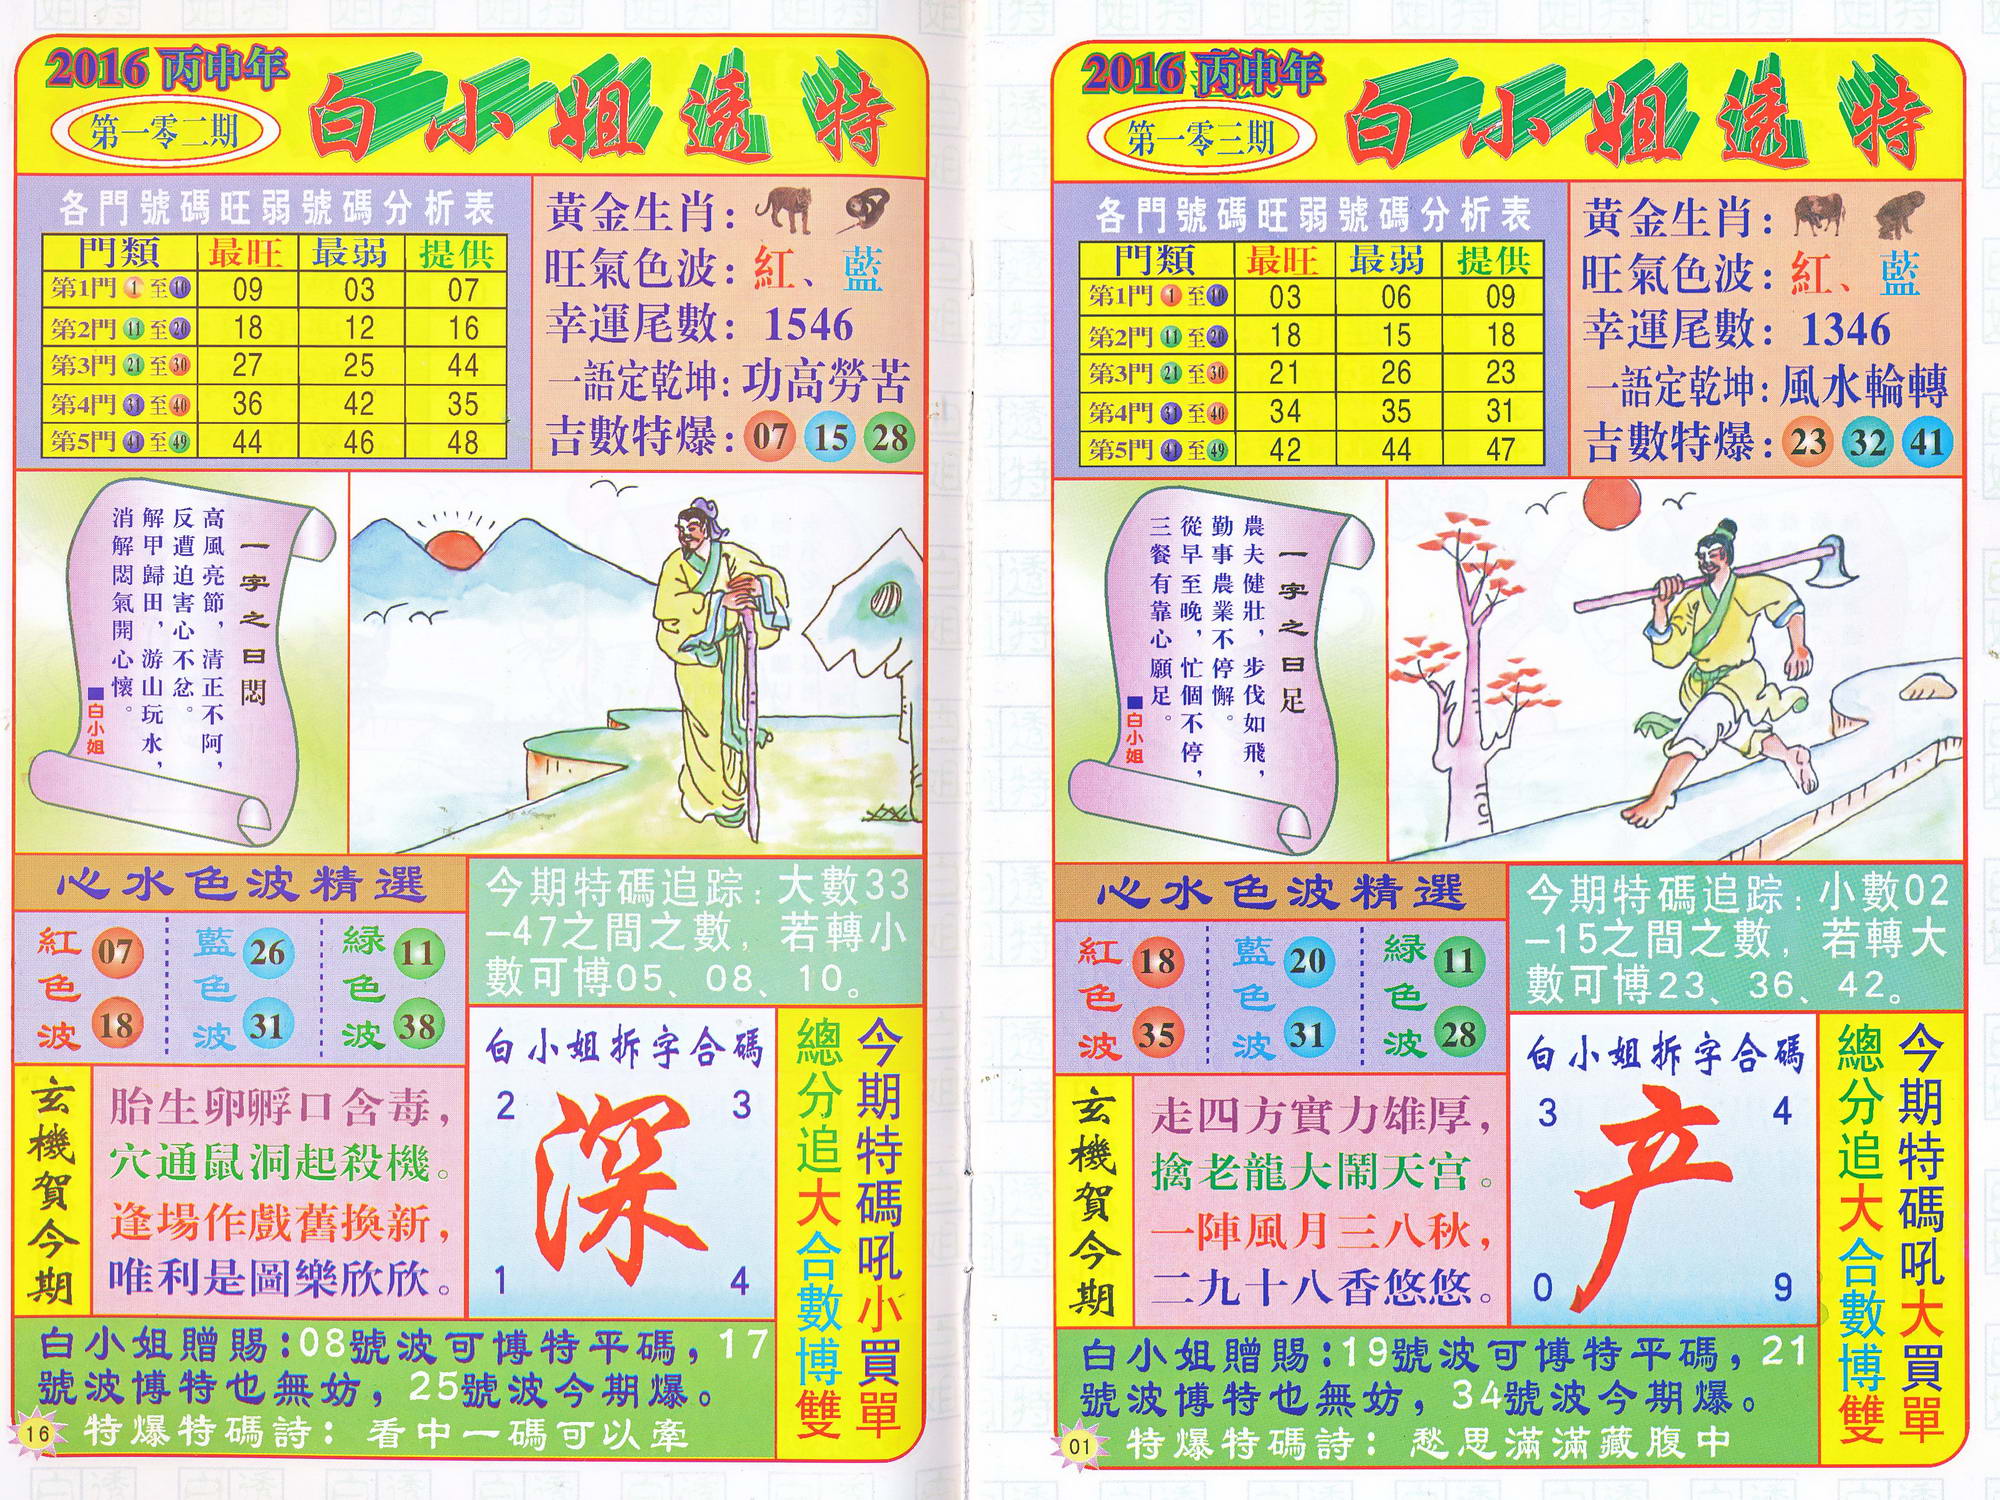 2016 丙申年
第一零二期
白小姐透特
各門號碼旺弱號碼分析表
門類 最旺 最弱 提供
第1門 1 至 10 09 03 07
第2門 11 至 20 18 12 16
第3門 21 至 30 27 25 44
第4門 31 至 40 36 42 35
第5門 41 至 49 44 46 48
黃金生肖：
旺氣色波：紅、藍
幸運尾數：1546
一語定乾坤：功高勞苦
吉數特爆：07 15 28
一字之曰悶
高風亮節，清正不阿，
反遭迫害心不忿。
解甲歸田，游山玩水，
消解悶氣開心懷。
■白小姐
心水色波精選
紅色波 07 18
藍色波 26 31
緑色波 11 38
今期特碼追踪：大數33
–47之間之數，若轉小
數可博05、08、10。
玄機賀今期
胎生卵孵口含毒，
穴通鼠洞起殺機。
逢場作戲舊換新，
唯利是圖樂欣欣。
白小姐拆字合碼
2 3
深
1 4
今期特碼吼小買單
總分追大合數博雙
白小姐贈賜：08號波可博特平碼，17
號波博特也無妨，25號波今期爆。
特爆特碼詩：看中一碼可以牽
16
2016 丙申年
第一零三期
白小姐透特
各門號碼旺弱號碼分析表
門類 最旺 最弱 提供
第1門 1 至 10 03 06 09
第2門 11 至 20 18 15 18
第3門 21 至 30 21 26 23
第4門 31 至 40 34 35 31
第5門 41 至 49 42 44 47
黃金生肖：
旺氣色波：紅、藍
幸運尾數：1346
一語定乾坤：風水輪轉
吉數特爆：23 32 41
一字之曰足
農夫健壯，步伐如飛，
勤事農業不停懈。
從早至晚，忙個不停，
三餐有靠心願足。
■白小姐
心水色波精選
紅色波 18 35
藍色波 20 31
緑色波 11 28
今期特碼追踪：小數02
–15之間之數，若轉大
數可博23、36、42。
玄機賀今期
走四方實力雄厚，
擒老龍大鬧天宮。
一陣風月三八秋，
二九十八香悠悠。
白小姐拆字合碼
3 4
产
0 9
今期特碼吼大買單
總分追大合數博雙
白小姐贈賜：19號波可博特平碼，21
號波博特也無妨，34號波今期爆。
特爆特碼詩：愁思滿滿藏腹中
01